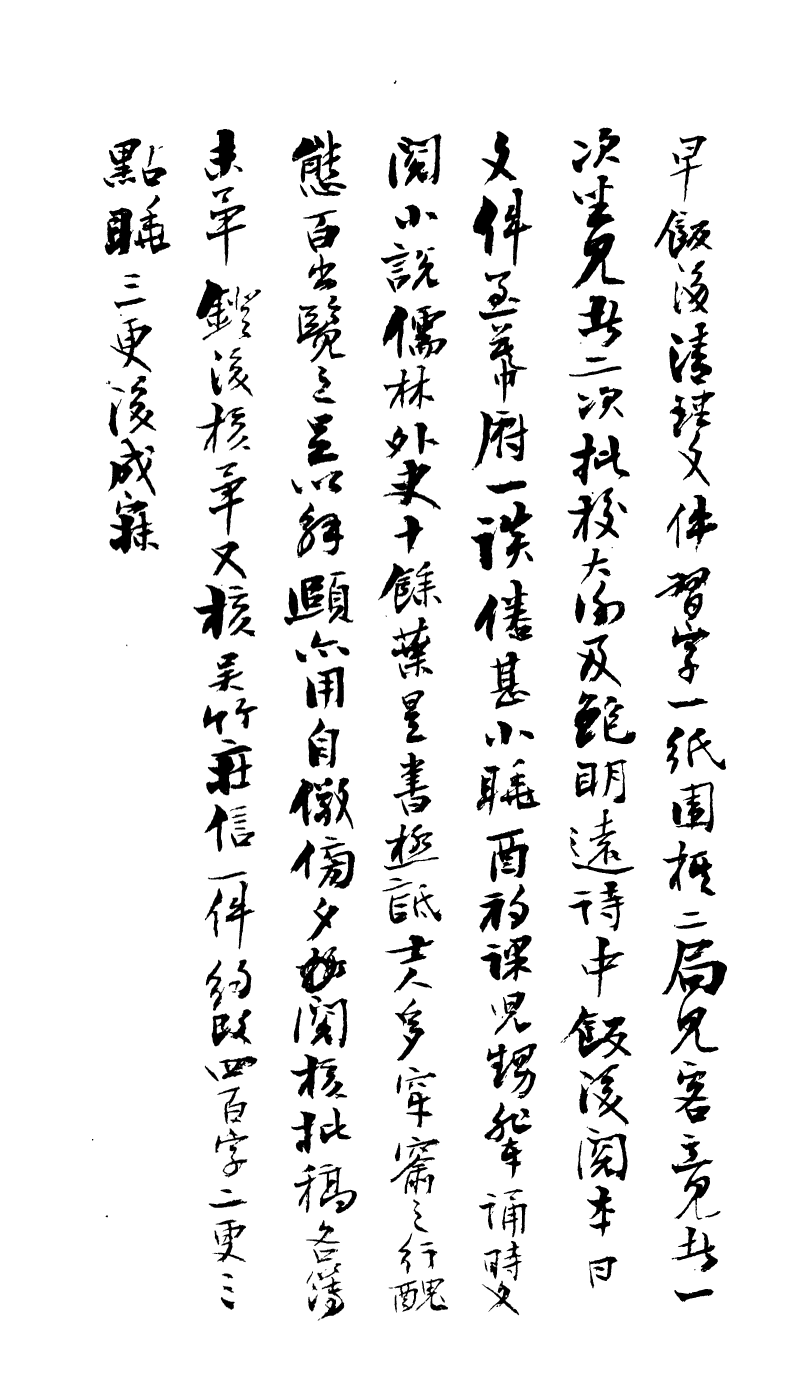 早飯後清理文件習字一紙圍棋二局見客立見者一
次坐見者二次批校大傳及鮑明遠詩中飯後閱本日
文件至幕府一談倦甚小睡酉初課兒甥輩誦時文
閱小說儒林外史十餘葉是書極詆士人多穿窬之行醜
態百出覽之足以解頤亦用自儆惕夕極閱核批稿各簿
未畢鐙後核畢又核吳竹莊信一件約改四百字二更三
點睡三更後成寐